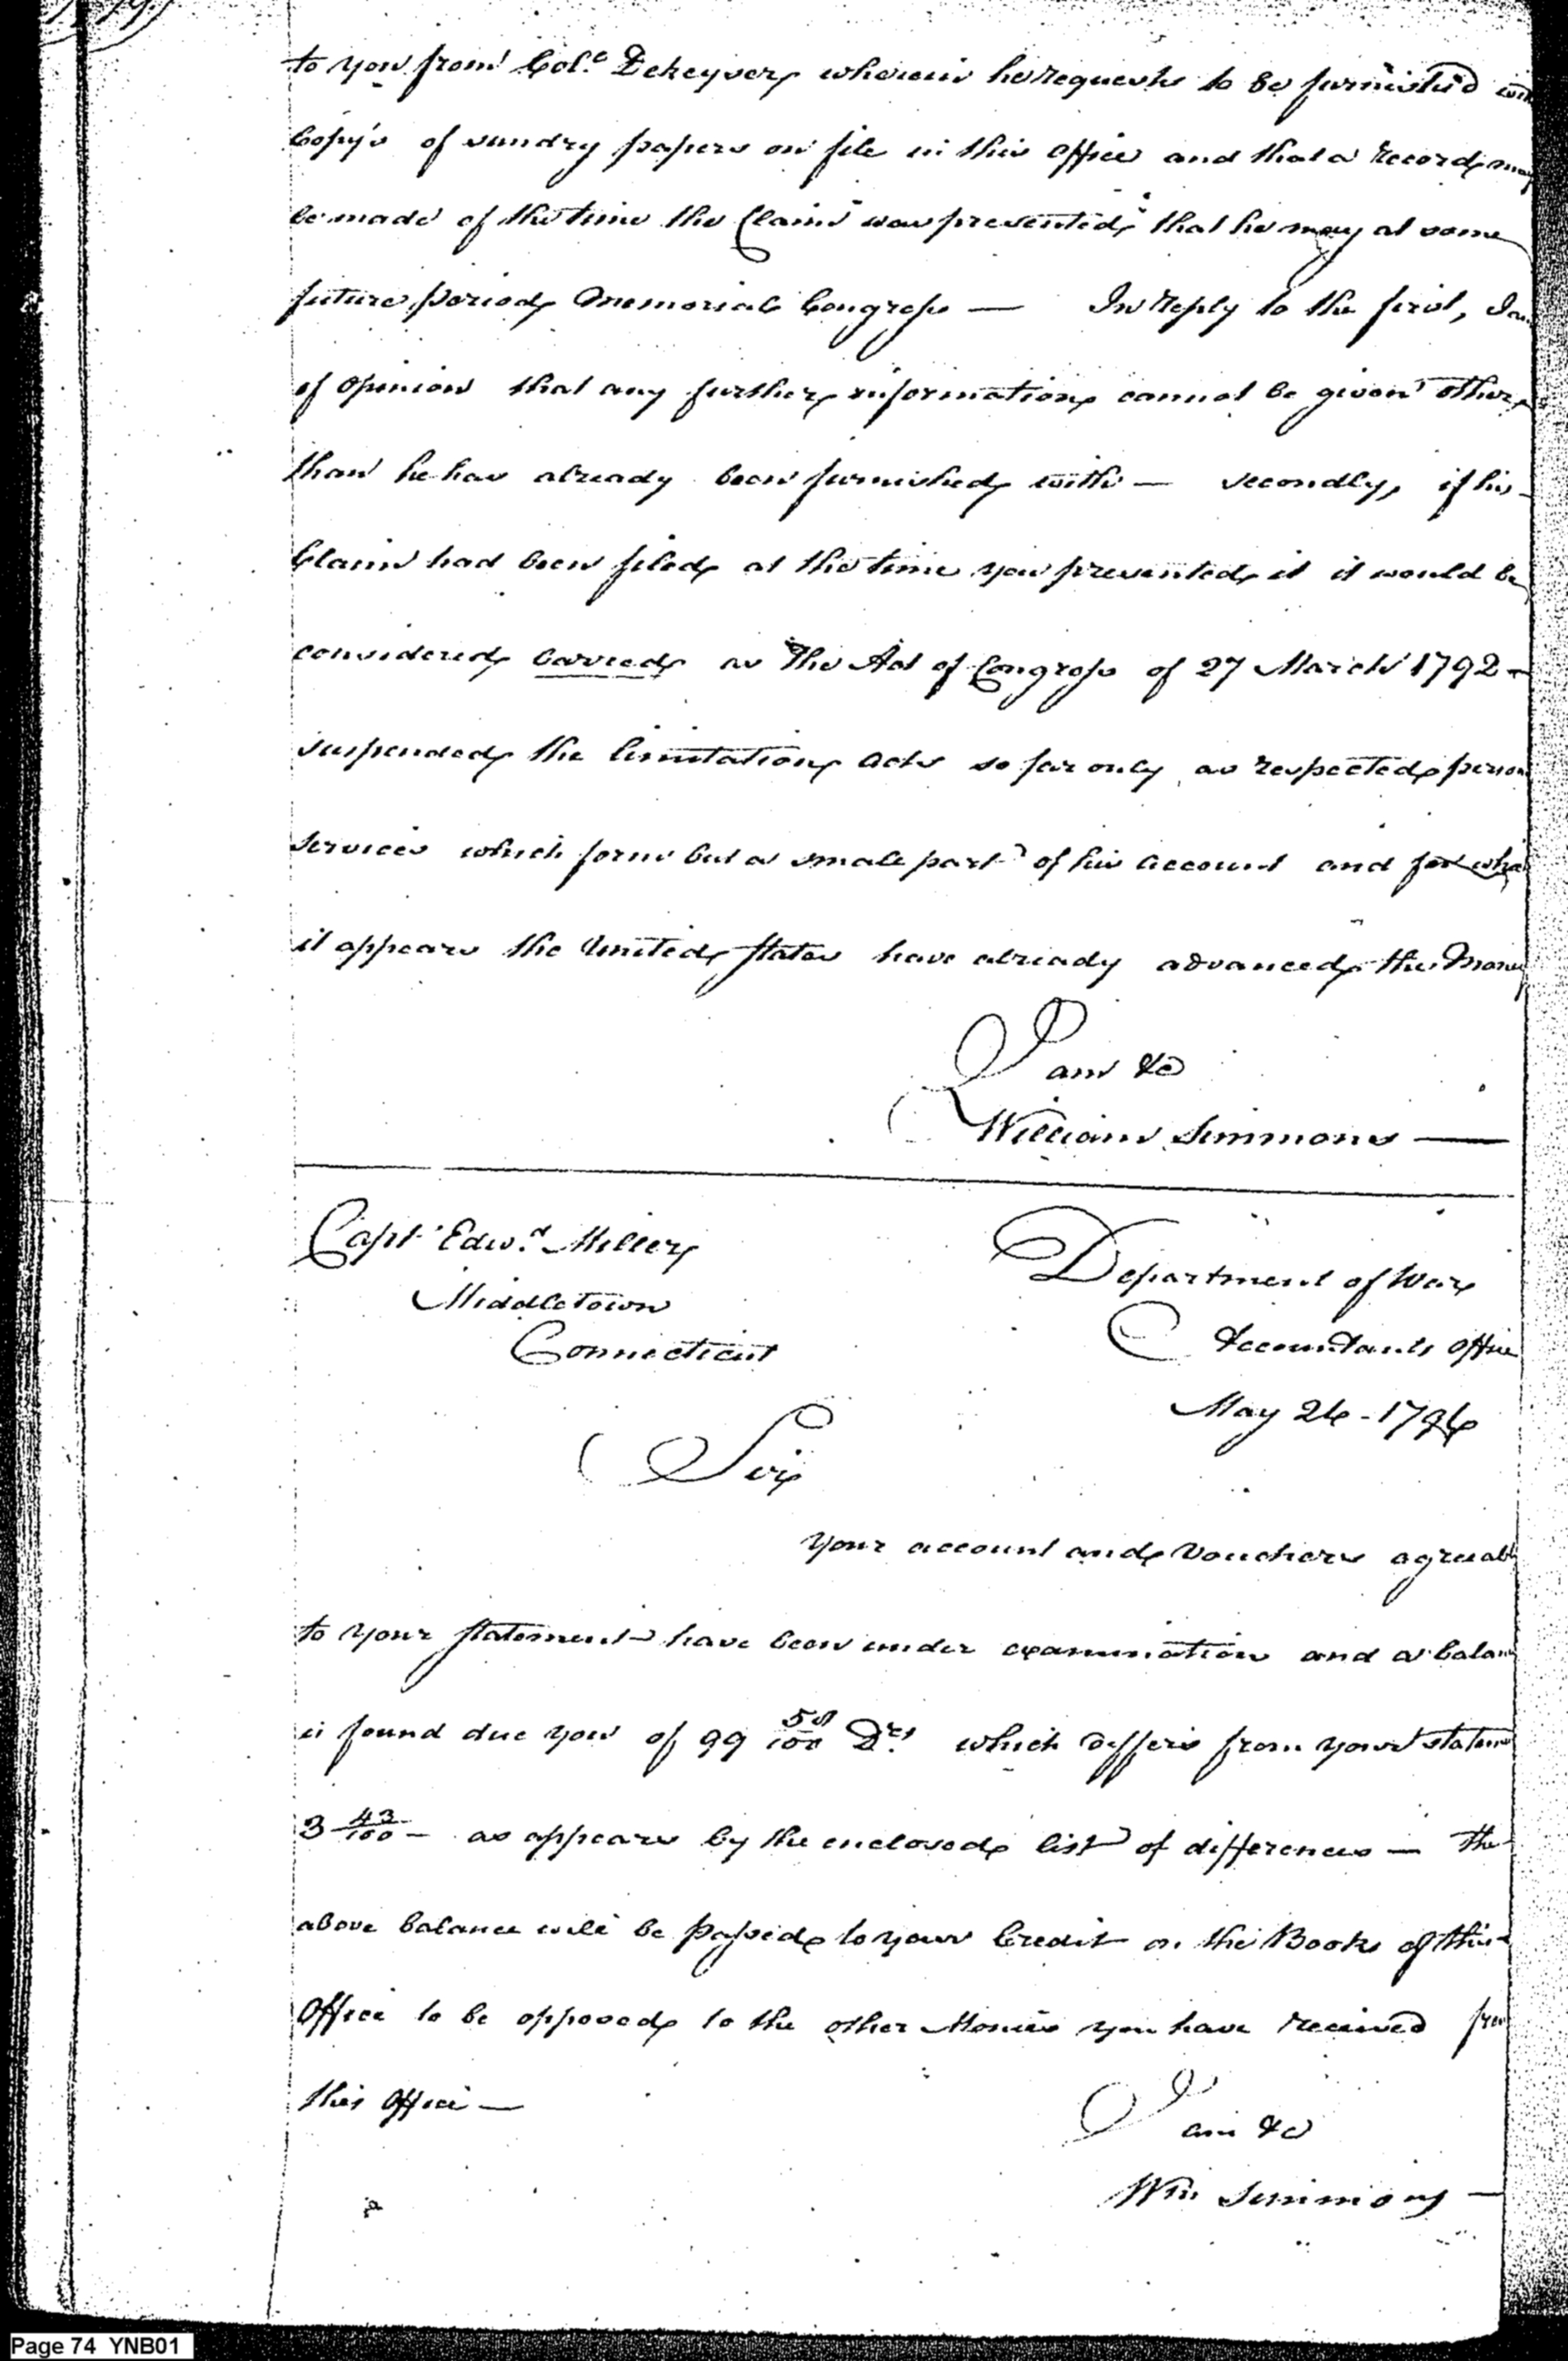 to you from Col.o Dekeyser wherein he requests to be furnish'd with
Copy's of sundry papers on file in this office and that a record may
be made of the time the Claim was presented, that he may at some
future period Memorial Congress — In reply to the first, I am
of opinion that any further information cannot be given other
than he has already been furnished with — secondly, if his
Claim had been filed at the time you presented it it would be
considered barred as the Act of Congress of 27 March 1792 —
suspended the limitation acts so far only as respected person
services which form but a small part of his account and for wha
it appears the United States have already advanced the Money
I am &c
William Simmons —
Capt Edwd. Miller
Middletown
Connecticut
Department of War
Accountants office
May 26 - 1796
Sir
Your account and Vouchers agreeabl
to your statement have been under examination and a balan
is found due you of 99 58/100 Drs. which differs from your statem
3 43/100 — as appears by the enclosed list of differences — the
above balance will be passed to your Credit on the Books of this
Office to be opposed to the other Monies you have received from
this office —
I am &c
Wm Simmons —
Page 74 YNB01